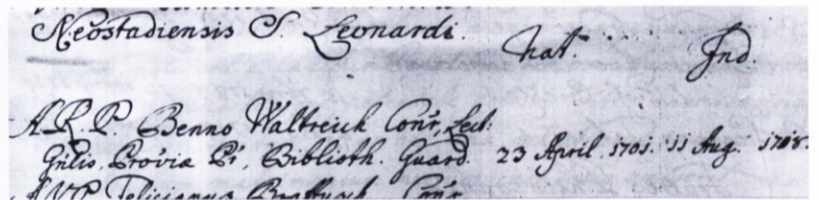 Neostadiensis S Leonardi.
Nat. Ind.
A.R.P. Benno Waltreich Conr, Lect:
Grilis, Proviæ Pr, Biblioth. Guard. 23 April. 1701. 11 Aug. 1718.
A.V.P. Felicianus